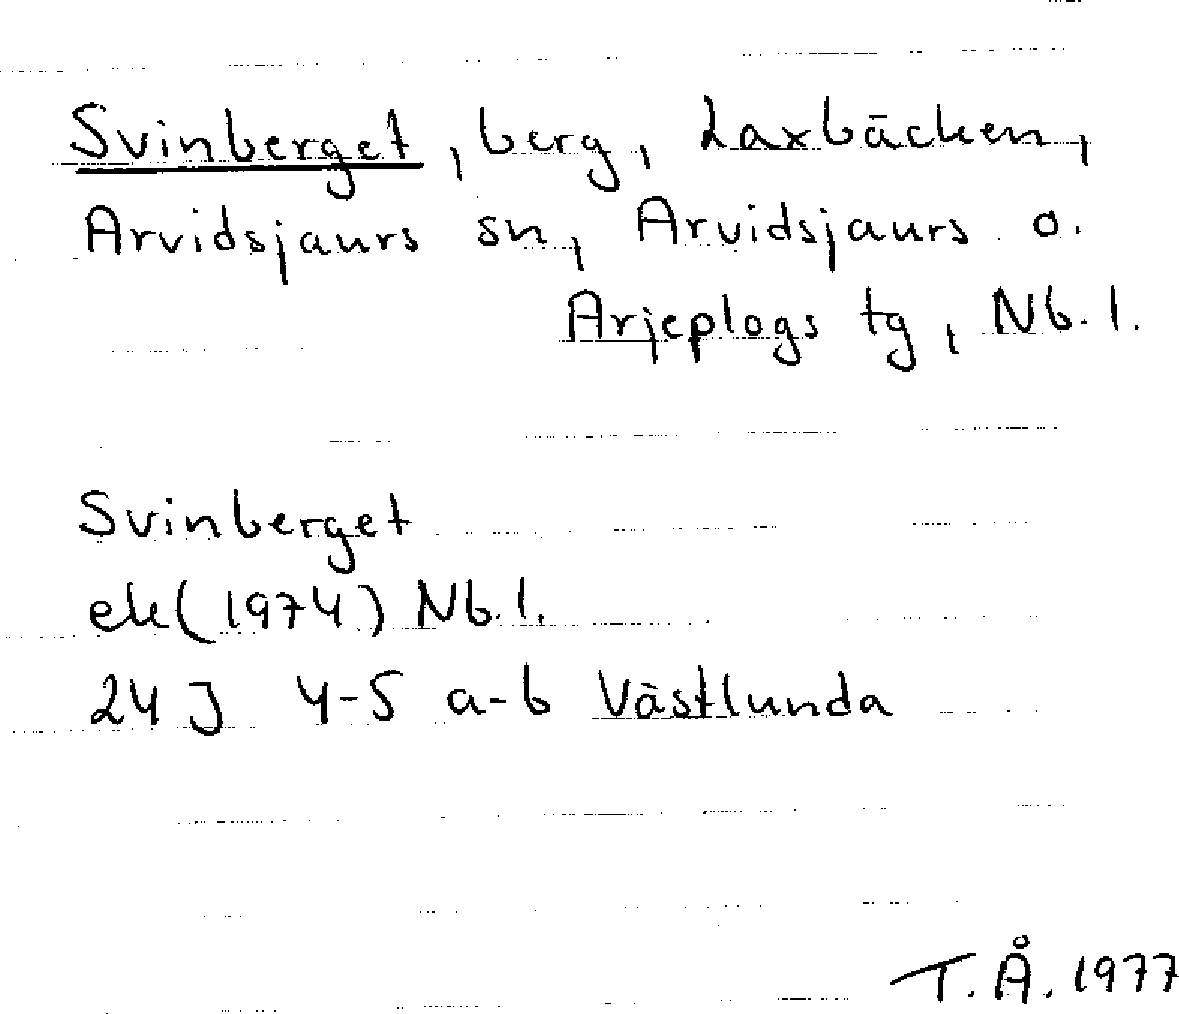 Svinberget, berg, Laxbäcken,
Arvidsjaurs sn, Arvidsjaurs o.
Arjeplogs tg, Nb. l.
Svinberget
ek (1974) Nb. l.
24 J 4-5 a-b Västlunda
T.Å. 1977